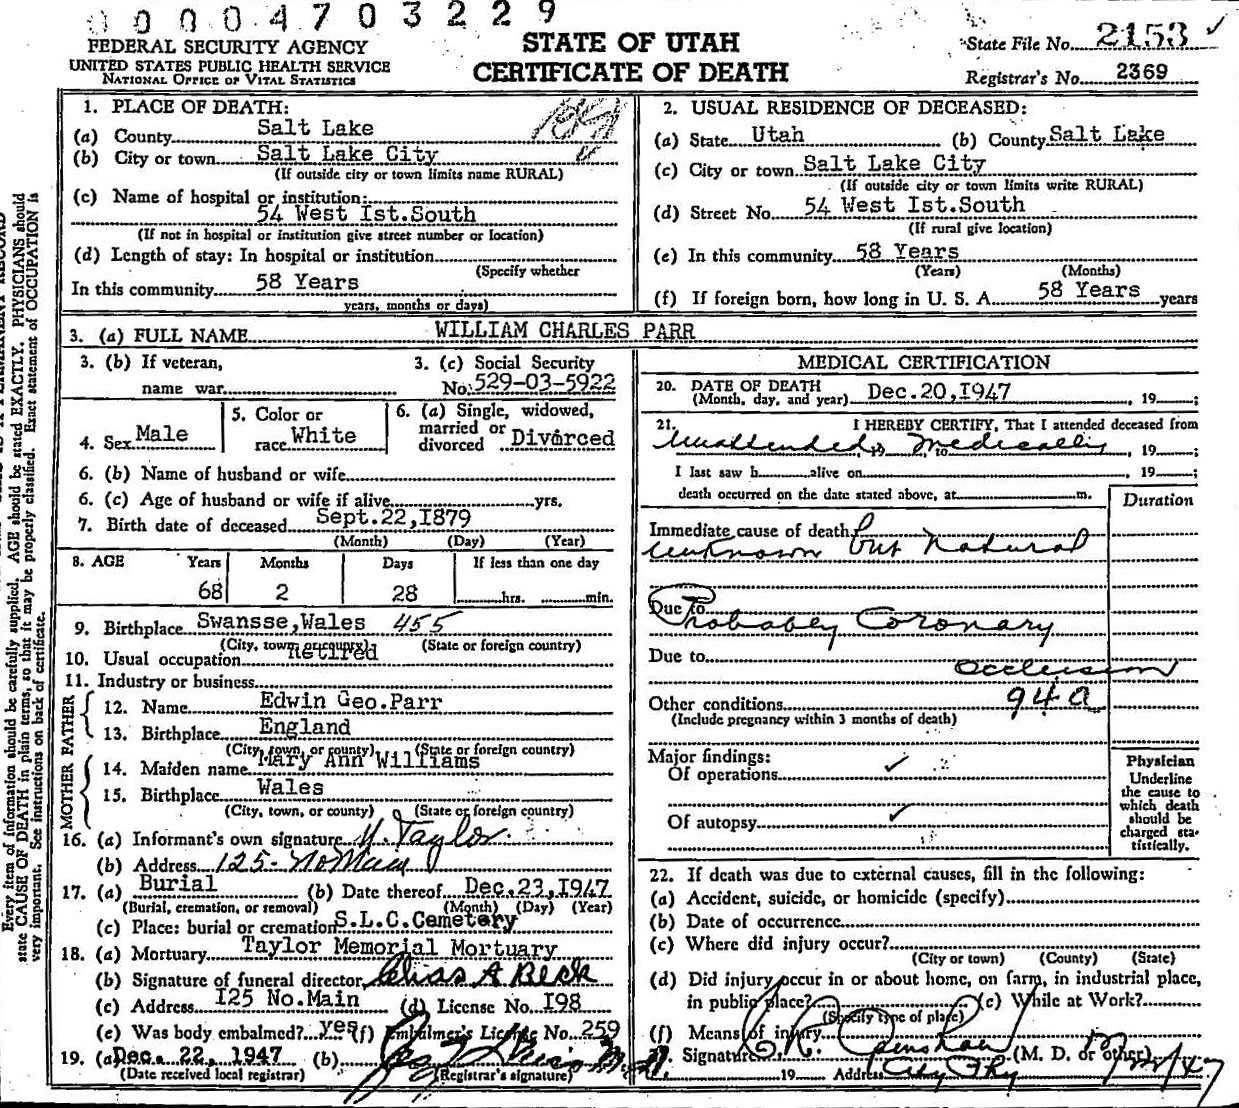 00004703229
FEDERAL SECURITY AGENCY
UNITED STATES PUBLIC HEALTH SERVICE
NATIONAL OFFICE OF VITAL STATISTICS
STATE OF UTAH
CERTIFICATE OF DEATH
State File No. 2153
Registrar's No. 2369
1. PLACE OF DEATH:
(a) County Salt Lake
(b) City or town Salt Lake City
(If outside city or town limits name RURAL)
(c) Name of hospital or institution:
54 West Ist.South
(If not in hospital or institution give street number or location)
(d) Length of stay: In hospital or institution
(Specify whether
In this community 58 Years
years, months or days)
2. USUAL RESIDENCE OF DECEASED:
(a) State Utah (b) County Salt Lake
(c) City or town Salt Lake City
(If outside city or town limits write RURAL)
(d) Street No. 54 West Ist.South
(If rural give location)
(e) In this community 58 Years
(Years) (Months)
(f) If foreign born, how long in U. S. A. 58 Years years
3. (a) FULL NAME WILLIAM CHARLES PARR
3. (b) If veteran,
name war
3. (c) Social Security
No. 529-03-5922
4. Sex Male
5. Color or
race White
6. (a) Single, widowed,
married or
divorced Divorced
6. (b) Name of husband or wife
6. (c) Age of husband or wife if alive yrs.
7. Birth date of deceased Sept.22,I879
(Month) (Day) (Year)
8. AGE Years Months Days If less than one day
68 2 28 hrs. min.
9. Birthplace Swansse,Wales 455
(City, town or county) (State or foreign country)
10. Usual occupation Retired
11. Industry or business
FATHER
12. Name Edwin Geo.Parr
13. Birthplace England
(City, town, or county) (State or foreign country)
MOTHER
14. Maiden name Mary Ann Williams
15. Birthplace Wales
(City, town, or county) (State or foreign country)
16. (a) Informant's own signature Taylor
(b) Address 125 - No Main
17. (a) Burial (b) Date thereof Dec.23,I947
(Burial, cremation, or removal) (Month) (Day) (Year)
(c) Place: burial or cremation S.L.C.Cemetery
18. (a) Mortuary Taylor Memorial Mortuary
(b) Signature of funeral director Chas A Beck
(c) Address I25 No.Main (d) License No. I98
(e) Was body embalmed? yes (f) Embalmer's License No. 259
19. (a) Dec. 22, 1947 (b)
(Date received local registrar) (Registrar's signature)
MEDICAL CERTIFICATION
20. DATE OF DEATH Dec.20,I947 , 19 ;
(Month, day, and year)
21. I HEREBY CERTIFY, That I attended deceased from
Unattended, 19 , to Medically , 19 ;
I last saw h alive on , 19 ;
death occurred on the date stated above, at m.
Duration
Immediate cause of death
Unknown but Natural
Due to
Probabey Coronary
Due to
Occlusion
Other conditions 94a
(Include pregnancy within 3 months of death)
Major findings:
Of operations
Of autopsy
Physician
Underline
the cause to
which death
should be
charged sta-
tistically.
22. If death was due to external causes, fill in the following:
(a) Accident, suicide, or homicide (specify)
(b) Date of occurrence
(c) Where did injury occur?
(City or town) (County) (State)
(d) Did injury occur in or about home, on farm, in industrial place,
in public place? (e) While at Work?
(Specify type of place)
(f) Means of injury
Signature (M. D. or other)
19 Address City Phy
Every item of information should be carefully supplied. AGE should be stated EXACTLY. PHYSICIANS should
state CAUSE OF DEATH in plain terms, so that it may be properly classified. Exact statement of OCCUPATION is
very important. See instructions on back of certificate.